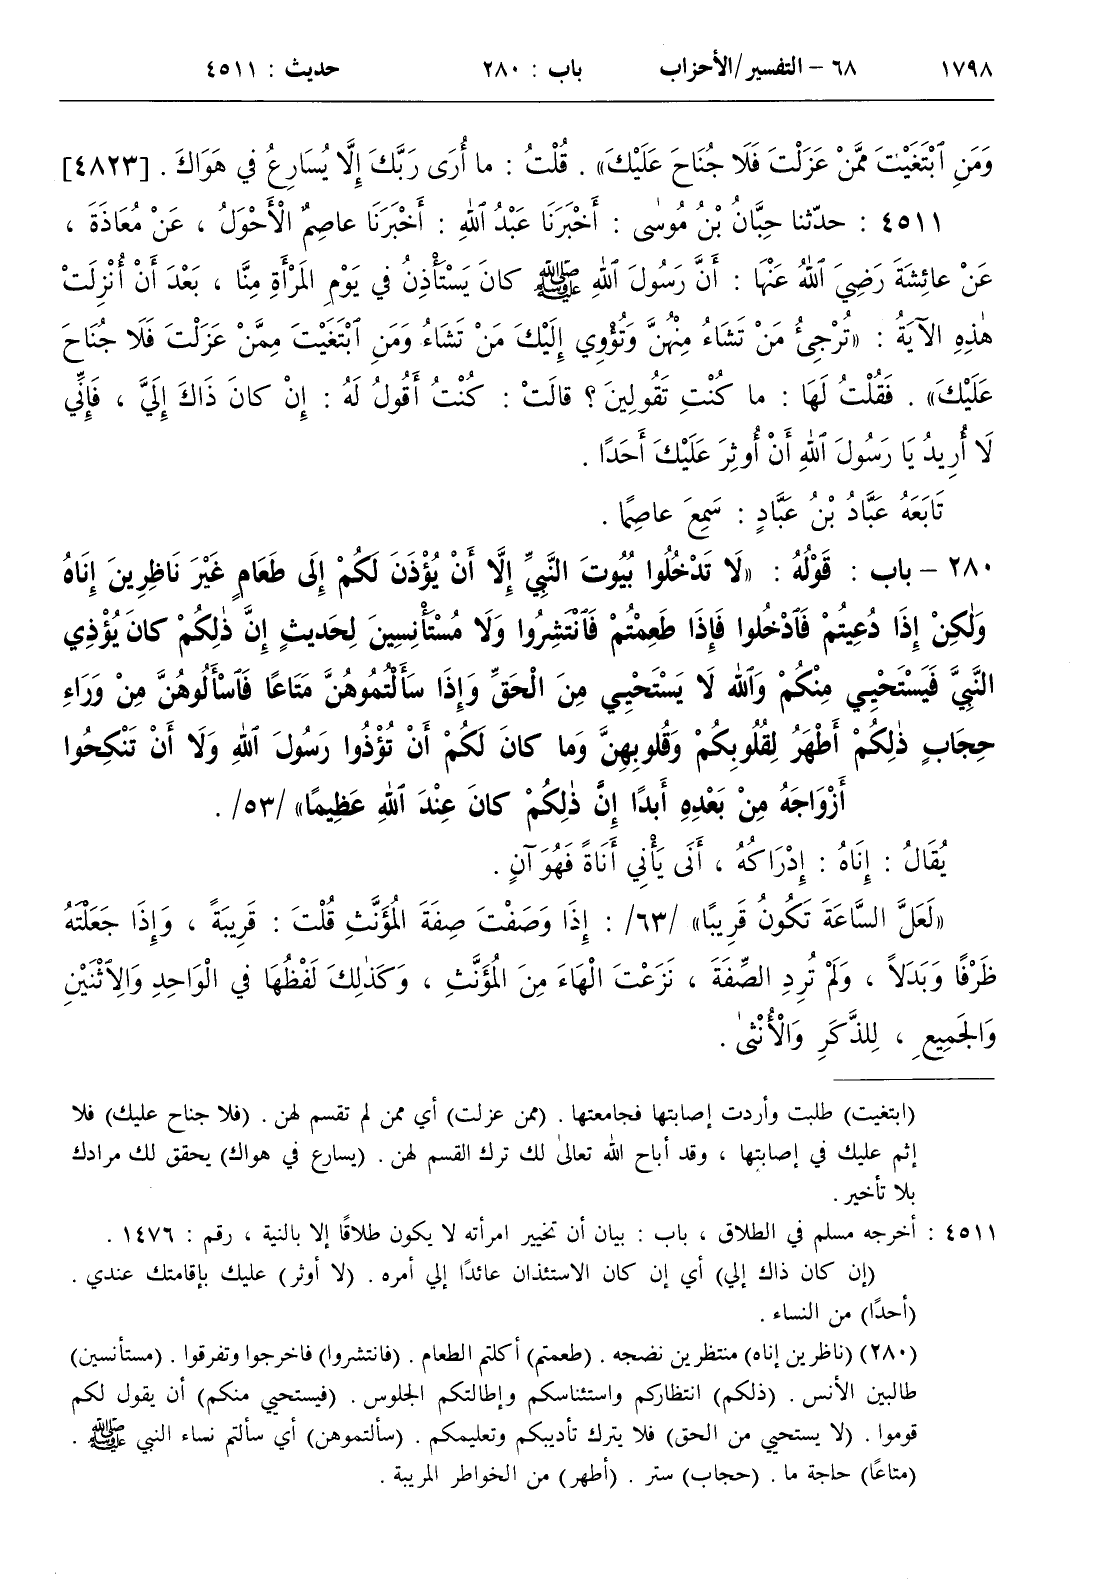 ١٧٩٨ ٦٨ – التفسير/الأحزاب باب : ٢٨٠ حديث : ٤٥١١
وَمَنِ ٱبْتَغَيْتَ مِمَّنْ عَزَلْتَ فَلَا جُنَاحَ عَلَيْكَ» . قُلْتُ : ما أُرَى رَبَّكَ إِلَّا يُسَارِعُ في هَوَاكَ . [٤٨٢٣]
٤٥١١ : حدّثنا حِبَّانُ بْنُ مُوسٰى : أَخْبَرَنَا عَبْدُ ٱللهِ : أَخْبَرَنَا عاصِمٌ الْأَحْوَلُ ، عَنْ مُعَاذَةَ ،
عَنْ عائِشَةَ رَضِيَ ٱللهُ عَنْهَا : أَنَّ رَسُولَ ٱللهِ ﷺ كانَ يَسْتَأْذِنُ في يَوْمِ المَرْأَةِ مِنَّا ، بَعْدَ أَنْ أُنْزِلَتْ
هٰذِهِ الآيَةُ : «تُرْجِئُ مَنْ تَشَاءُ مِنْهُنَّ وَتُؤْوِي إِلَيْكَ مَنْ تَشَاءُ وَمَنِ ٱبْتَغَيْتَ مِمَّنْ عَزَلْتَ فَلَا جُنَاحَ
عَلَيْكَ» . فَقُلْتُ لَهَا : ما كُنْتِ تَقُولِينَ ؟ قالَتْ : كُنْتُ أَقُولُ لَهُ : إِنْ كانَ ذَاكَ إِلَيَّ ، فَإِنِّي
لَا أُرِيدُ يَا رَسُولَ ٱللهِ أَنْ أُوثِرَ عَلَيْكَ أَحَدًا .
تَابَعَهُ عَبَّادُ بْنُ عَبَّادٍ : سَمِعَ عاصِمًا .
٢٨٠ – باب : قَوْلُهُ : «لَا تَدْخُلُوا بُيُوتَ النَّبِيِّ إِلَّا أَنْ يُؤْذَنَ لَكُمْ إِلَى طَعَامٍ غَيْرَ نَاظِرِينَ إِنَاهُ
وَلٰكِنْ إِذَا دُعِيتُمْ فَٱدْخُلُوا فَإِذَا طَعِمْتُمْ فَٱنْتَشِرُوا وَلَا مُسْتَأْنِسِينَ لِحَدِيثٍ إِنَّ ذٰلِكُمْ كانَ يُؤْذِي
النَّبِيَّ فَيَسْتَحْيِي مِنْكُمْ وَٱللهُ لَا يَسْتَحْيِي مِنَ الْحَقِّ وَإِذَا سَأَلْتُمُوهُنَّ مَتَاعًا فَٱسْأَلُوهُنَّ مِنْ وَرَاءِ
حِجَابٍ ذٰلِكُمْ أَطْهَرُ لِقُلُوبِكُمْ وَقُلوبِهِنَّ وَما كانَ لَكُمْ أَنْ تُؤْذُوا رَسُولَ ٱللهِ وَلَا أَنْ تَنْكِحُوا
أَزْوَاجَهُ مِنْ بَعْدِهِ أَبَدًا إِنَّ ذٰلِكُمْ كانَ عِنْدَ ٱللهِ عَظِيمًا» /٥٣/ .
يُقَالُ : إِنَاهُ : إِدْرَاكُهُ ، أَنَى يَأْنِي أَنَاةً فَهُوَ آنٍ .
«لَعَلَّ السَّاعَةَ تَكُونُ قَرِيبًا» /٦٣/ : إِذَا وَصَفْتَ صِفَةَ المُؤَنَّثِ قُلْتَ : قَرِيبَةً ، وَإِذَا جَعَلْتَهُ
ظَرْفًا وَبَدَلاً ، وَلَمْ تُرِدِ الصِّفَةَ ، نَزَعْتَ الْهَاءَ مِنَ المُؤَنَّثِ ، وَكَذٰلِكَ لَفْظُهَا في الْوَاحِدِ وَالِٱثْنَيْنِ
وَالجَمِيعِ ، لِلذَّكَرِ وَالْأُنْثىٰ .
(ابتغيت) طلبت وأردت إصابتها فجامعتها . (ممن عزلت) أي ممن لم تقسم لهن . (فلا جناح عليك) فلا
إثم عليك في إصابتها ، وقد أباح الله تعالىٰ لك ترك القسم لهن . (يسارع في هواك) يحقق لك مرادك
بلا تأخير .
٤٥١١ : أخرجه مسلم في الطلاق ، باب : بيان أن تخيير امرأته لا يكون طلاقًا إلا بالنية ، رقم : ١٤٧٦ .
(إن كان ذاك إلي) أي إن كان الاستئذان عائدًا إلي أمره . (لا أوثر) عليك بإقامتك عندي .
(أحدًا) من النساء .
(٢٨٠) (ناظرين إناه) منتظرين نضجه . (طعمتم) أكلتم الطعام . (فانتشروا) فاخرجوا وتفرقوا . (مستأنسين)
طالبين الأنس . (ذلكم) انتظاركم واستئناسكم وإطالتكم الجلوس . (فيستحيي منكم) أن يقول لكم
قوموا . (لا يستحيي من الحق) فلا يترك تأديبكم وتعليمكم . (سألتموهن) أي سألتم نساء النبي ﷺ .
(متاعًا) حاجة ما . (حجاب) ستر . (أطهر) من الخواطر المريبة .